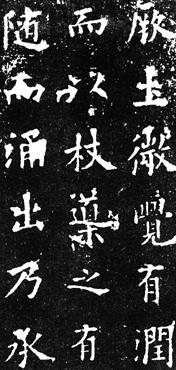 厥土微覺有潤
而以杖導之有
随而涌出乃承